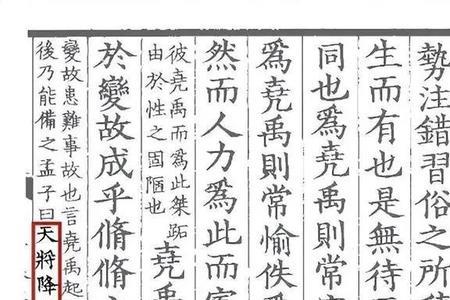 勢注錯習俗之所
生而有也是無待
同也爲堯禹則常
爲堯禹則常愉佚
然而人力爲此而
彼堯禹而爲此桀跖
由於性之固陋也
堯
於變故成乎脩脩
變故患難事故也言堯禹起
後乃能備之孟子曰天將降